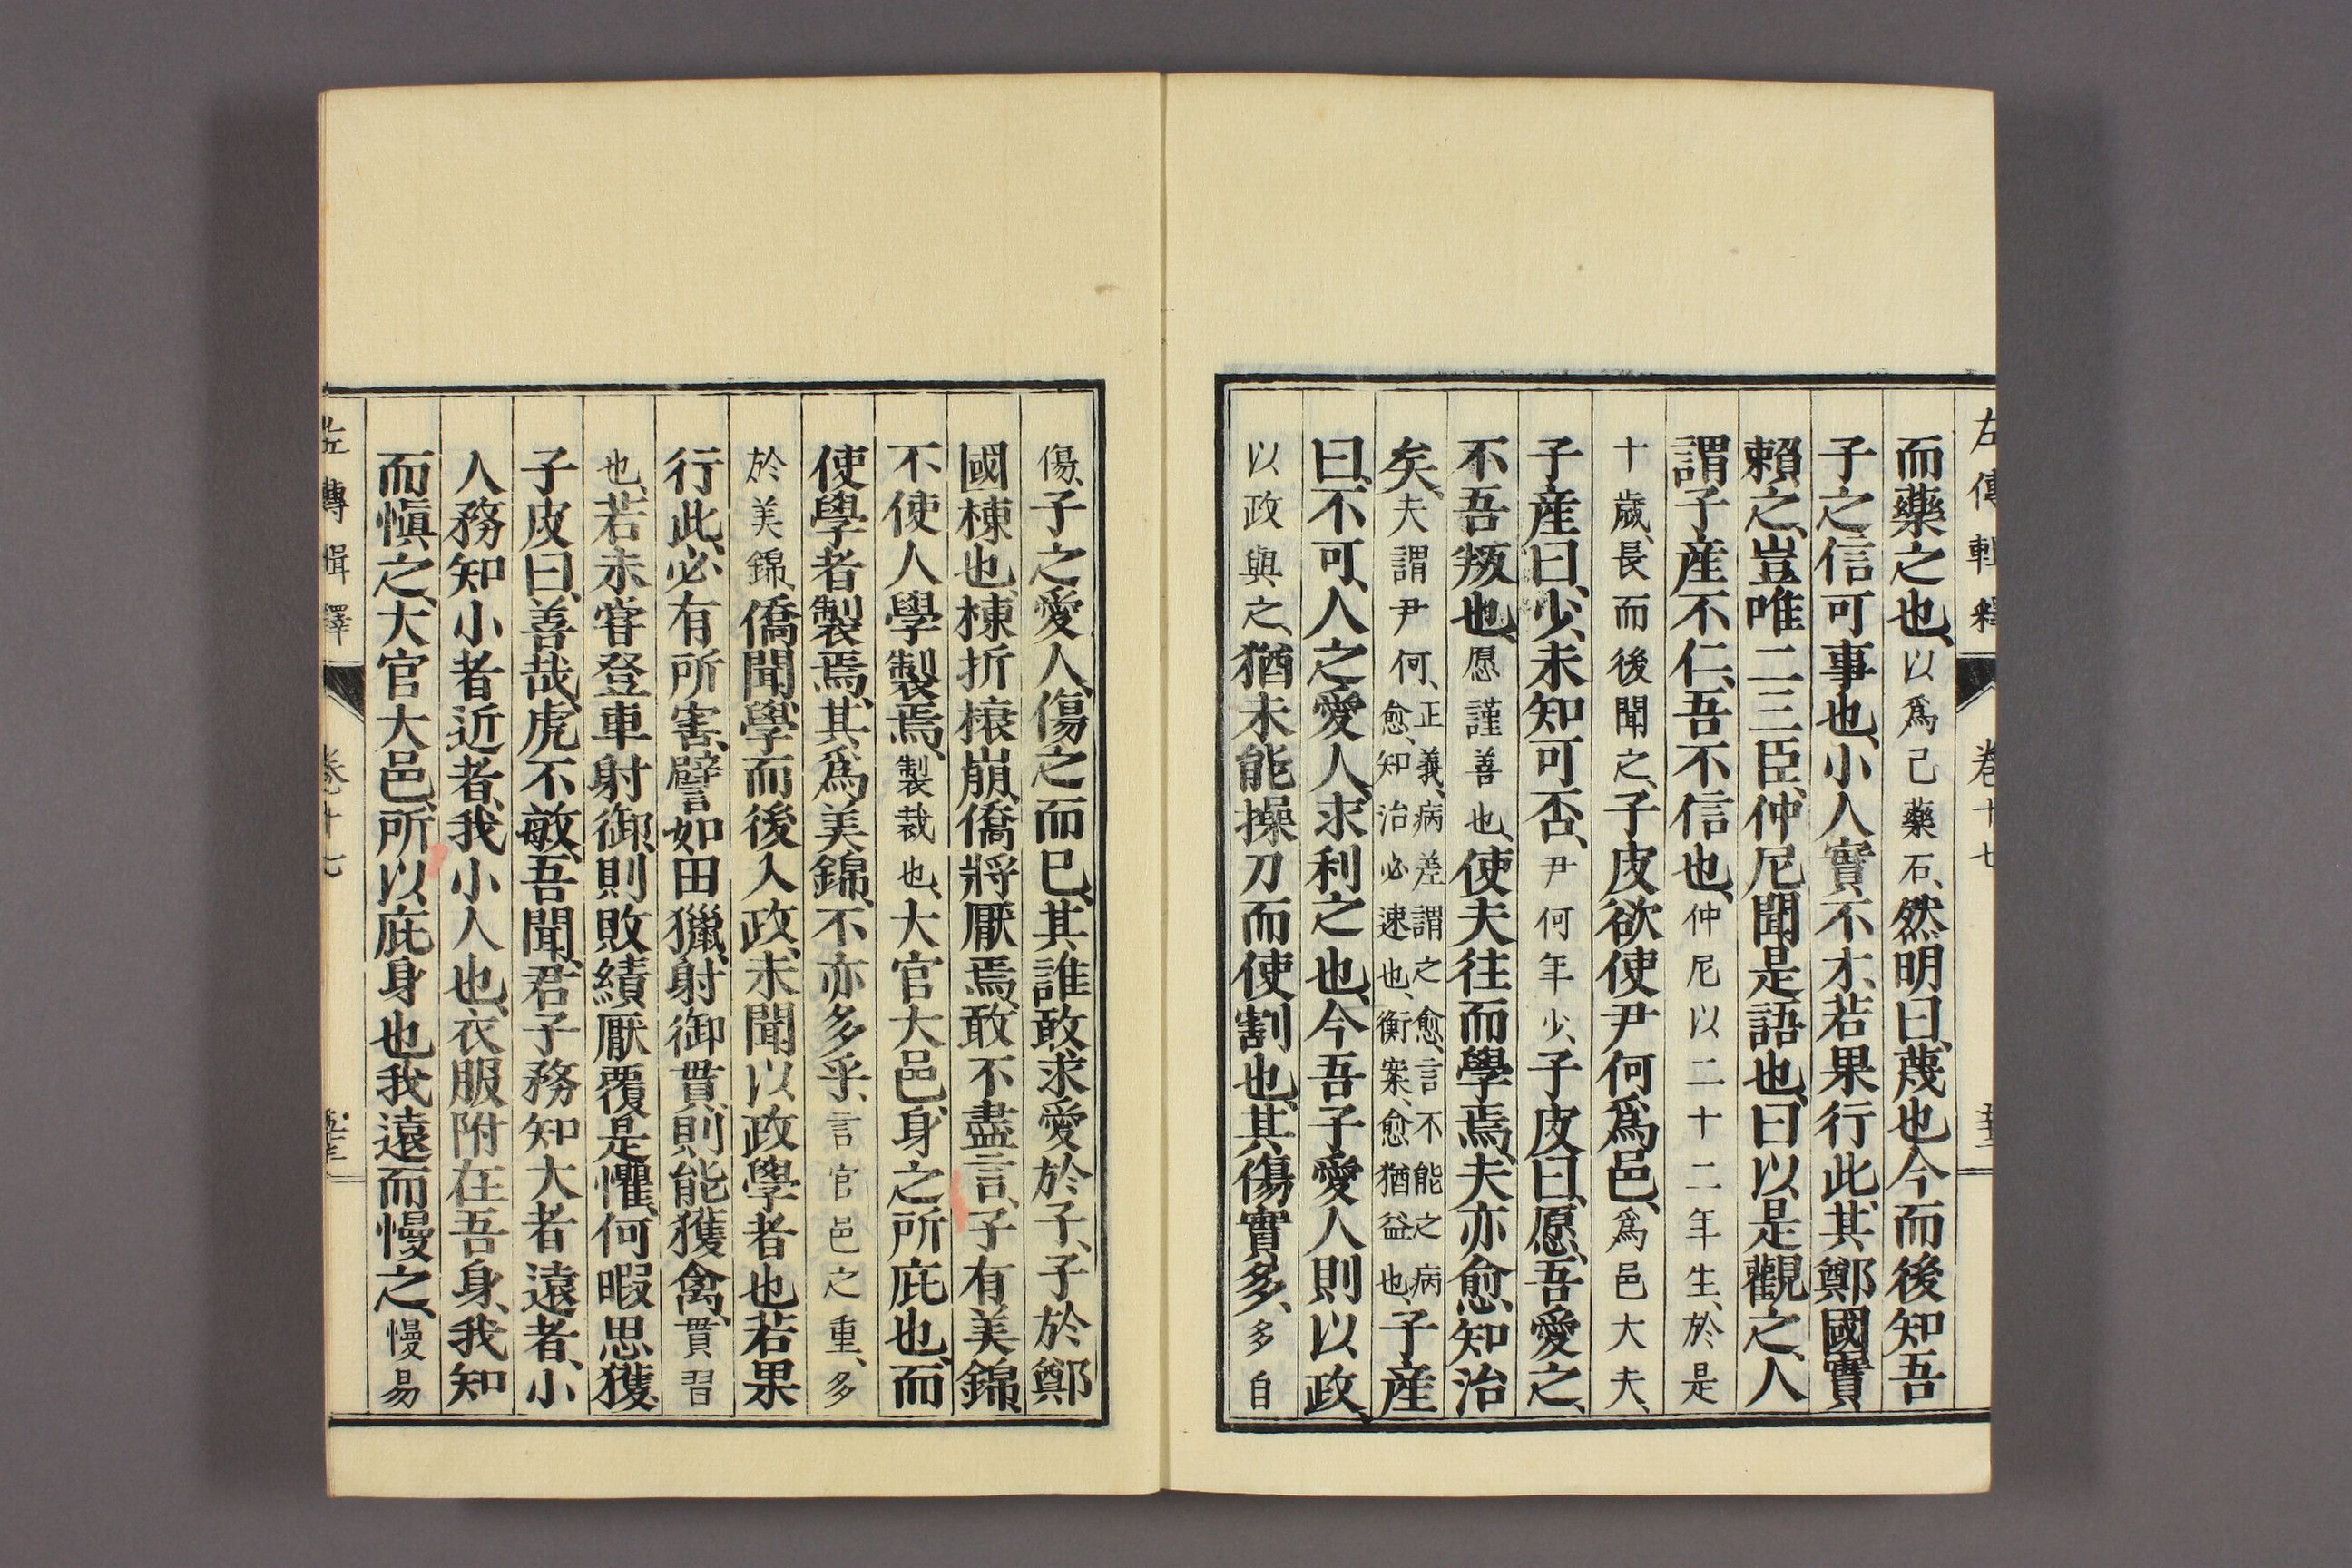 左傳輯釋 卷十七
而藥之也、以爲己藥石、然明曰、蔑也今而後知吾
子之信可事也、小人實不才、若果行此、其鄭國實
賴之、豈唯二三臣、仲尼聞是語也、曰以是觀之、人
謂子産不仁、吾不信也、仲尼以二十二年生、於是
十歲、長而後聞之、子皮欲使尹何爲邑、爲邑大夫、
子産曰、少、未知可否、尹何年少、子皮曰、愿、吾愛之、
不吾叛也、愿謹善也、使夫往而學焉、夫亦愈知治
矣、夫謂尹何、正義、病差謂之愈、言不能之病愈、知治必速也、衡案、愈猶益也、子産
曰、不可、人之愛人、求利之也、今吾子愛人則以政、
以政與之、猶未能操刀而使割也、其傷實多、多自
傷、子之愛人、傷之而已、其誰敢求愛於子、子於鄭
國棟也、棟折榱崩、僑將厭焉、敢不盡言、子有美錦
不使人學製焉、製裁也、大官大邑、身之所庇也、而
使學者製焉、其爲美錦、不亦多乎、言官邑之重、多
於美錦、僑聞、學而後入政、未聞以政學者也、若果
行此、必有所害、譬如田獵、射御貫、則能獲禽、貫習
也、若未嘗登車射御、則敗績厭覆是懼、何暇思獲、
子皮曰、善哉、虎不敏、吾聞、君子務知大者遠者、小
人務知小者近者、我小人也、衣服附在吾身、我知
而愼之、大官大邑、所以庇身也、我遠而慢之、慢易
左傳輯釋 卷十七